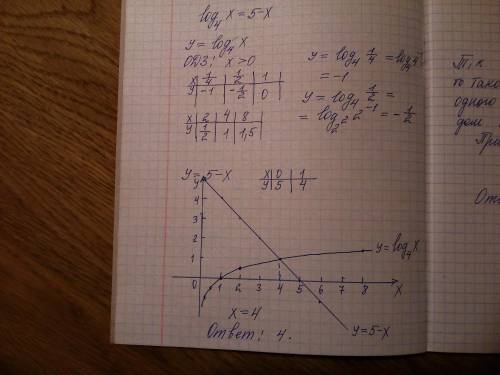 log₄ x = 5-x
y = log₄ x
ОДЗ: x>0
x | 1/4 | 1/2 | 1
y | -1 | -1/2 | 0
x | 2 | 4 | 8
y | 1/2 | 1 | 1,5
y = log₄ 1/4 = log₄ 4⁻¹
= -1
y = log₄ 1/2 =
= log₂² 2⁻¹ = -1/2
y = 5-x
x | 0 | 1
y | 5 | 4
y
4
3
2
1
y=log₄x
0 1 2 3 4 5 6 7 8 x
x=4
y=5-x
Ответ: 4.
Т.к
то тако
одного
дом.
При
Отв